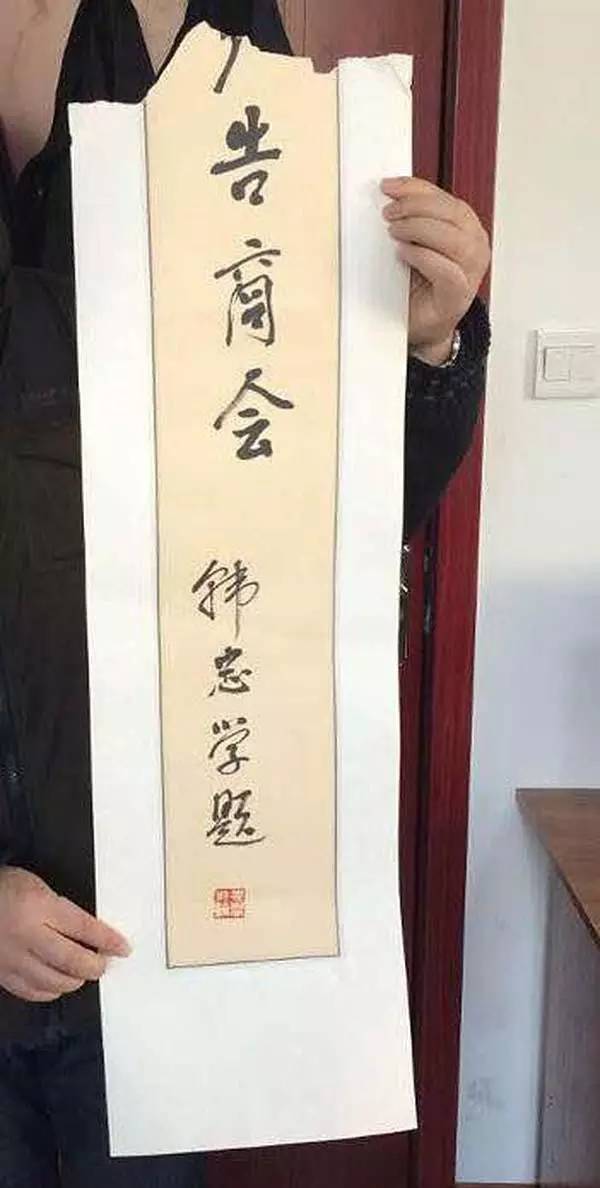 告商会
韩忠学题